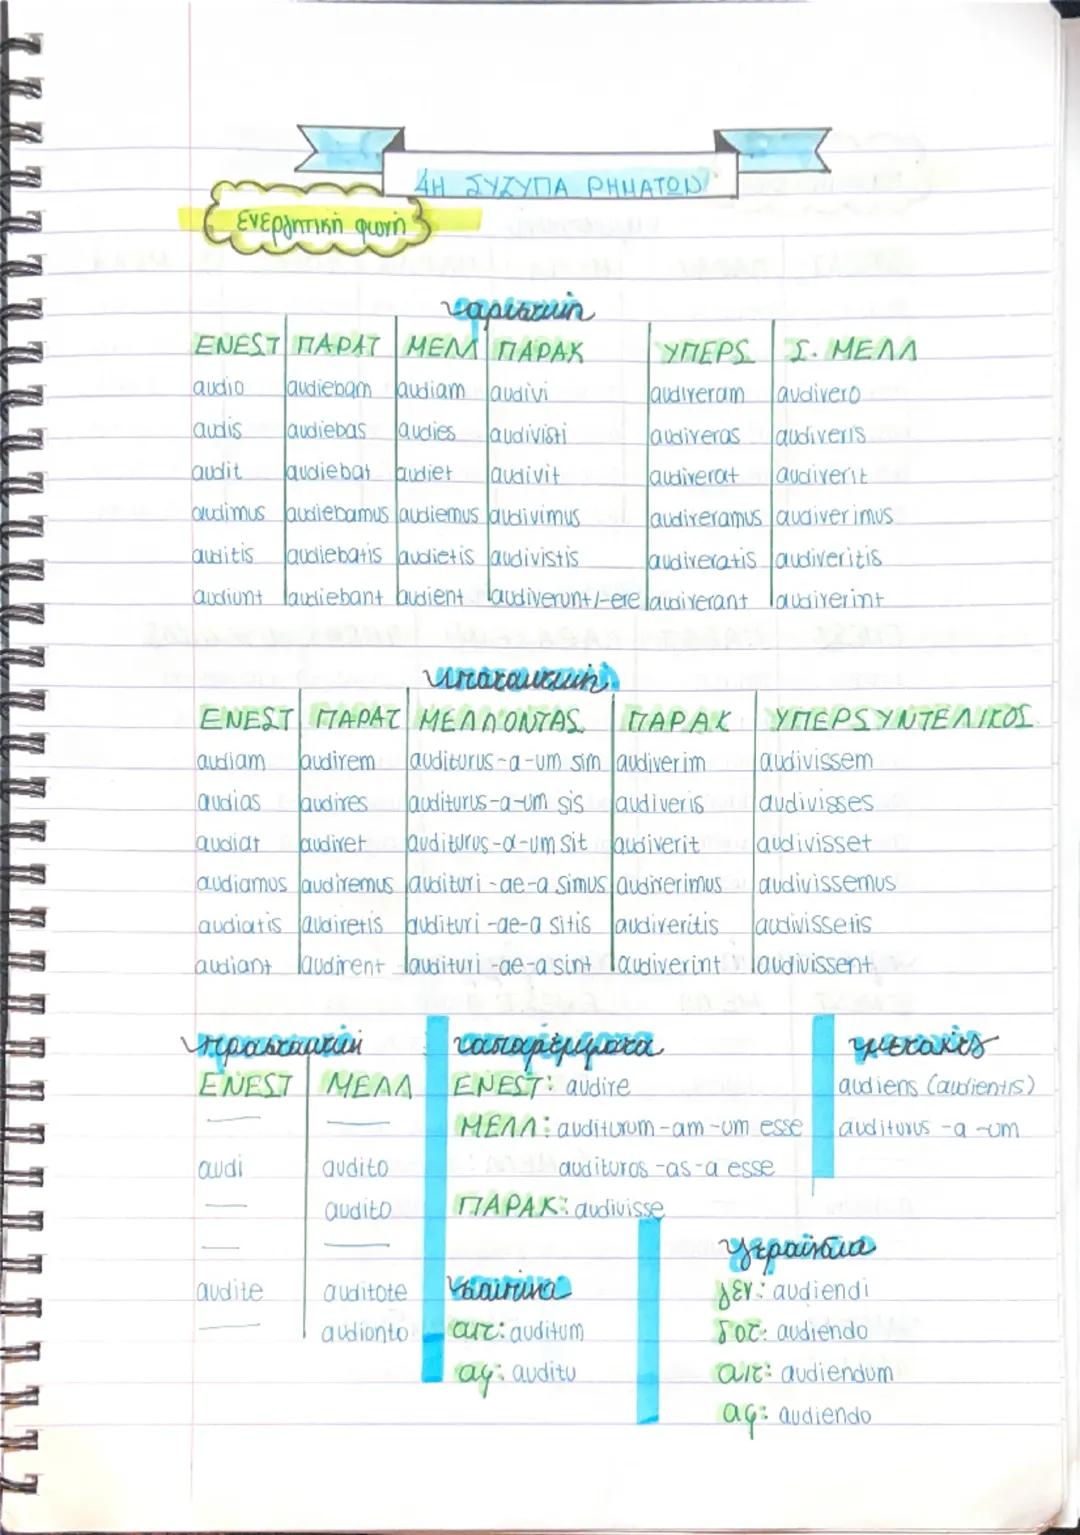 4Η ΣΥΖΥΠΑ ΡΗΜΑΤΩΝ
Ενεργητική φωνή
οριστική
ΕΝΕΣΤ ΠΑΡΑΤ ΜΕΛΛ ΠΑΡΑΚ ΥΠΕΡΣ Σ. ΜΕΛΛ
audio audiebam audiam audivi audiveram audivero
audis audiebas audies audivisti audiveras audiveris
audit audiebat audiet audivit audiverat audiverit
audimus audiebamus audiemus audivimus audiveramus audiverimus
auditis audiebatis audietis audivistis audiveratis audiveritis
audiunt audiebant audient audiverunt/-ere audiverant audiverint
υποτακτική
ΕΝΕΣΤ ΠΑΡΑΤ ΜΕΛΛΟΝΤΑΣ ΠΑΡΑΚ ΥΠΕΡΣΥΝΤΕΛΙΚΟΣ
audiam audirem auditurus-a-um sim audiverim audivissem
audias audires auditurus-a-um sis audiveris audivisses
audiat audiret auditurus-a-um sit audiverit audivisset
audiamus audiremus audituri -ae-a simus audiverimus audivissemus
audiatis audiretis audituri -ae-a sitis audiveritis audivissetis
audiant audirent audituri -ae-a sint audiverint audivissent
προστακτική απαρέμφατα μετοχές
ΕΝΕΣΤ ΜΕΛΛ ΕΝΕΣΤ: audire audiens (audientis)
— — ΜΕΛΛ: auditurum-am-um esse auditurus -a -um
audi audito audituros -as-a esse
— audito ΠΑΡΑΚ: audivisse
— — γερούνδια
audite auditote σουπίνο γεν: audiendi
— audionto αιτ: auditum δοτ: audiendo
αφ: auditu αιτ: audiendum
αφ: audiendo